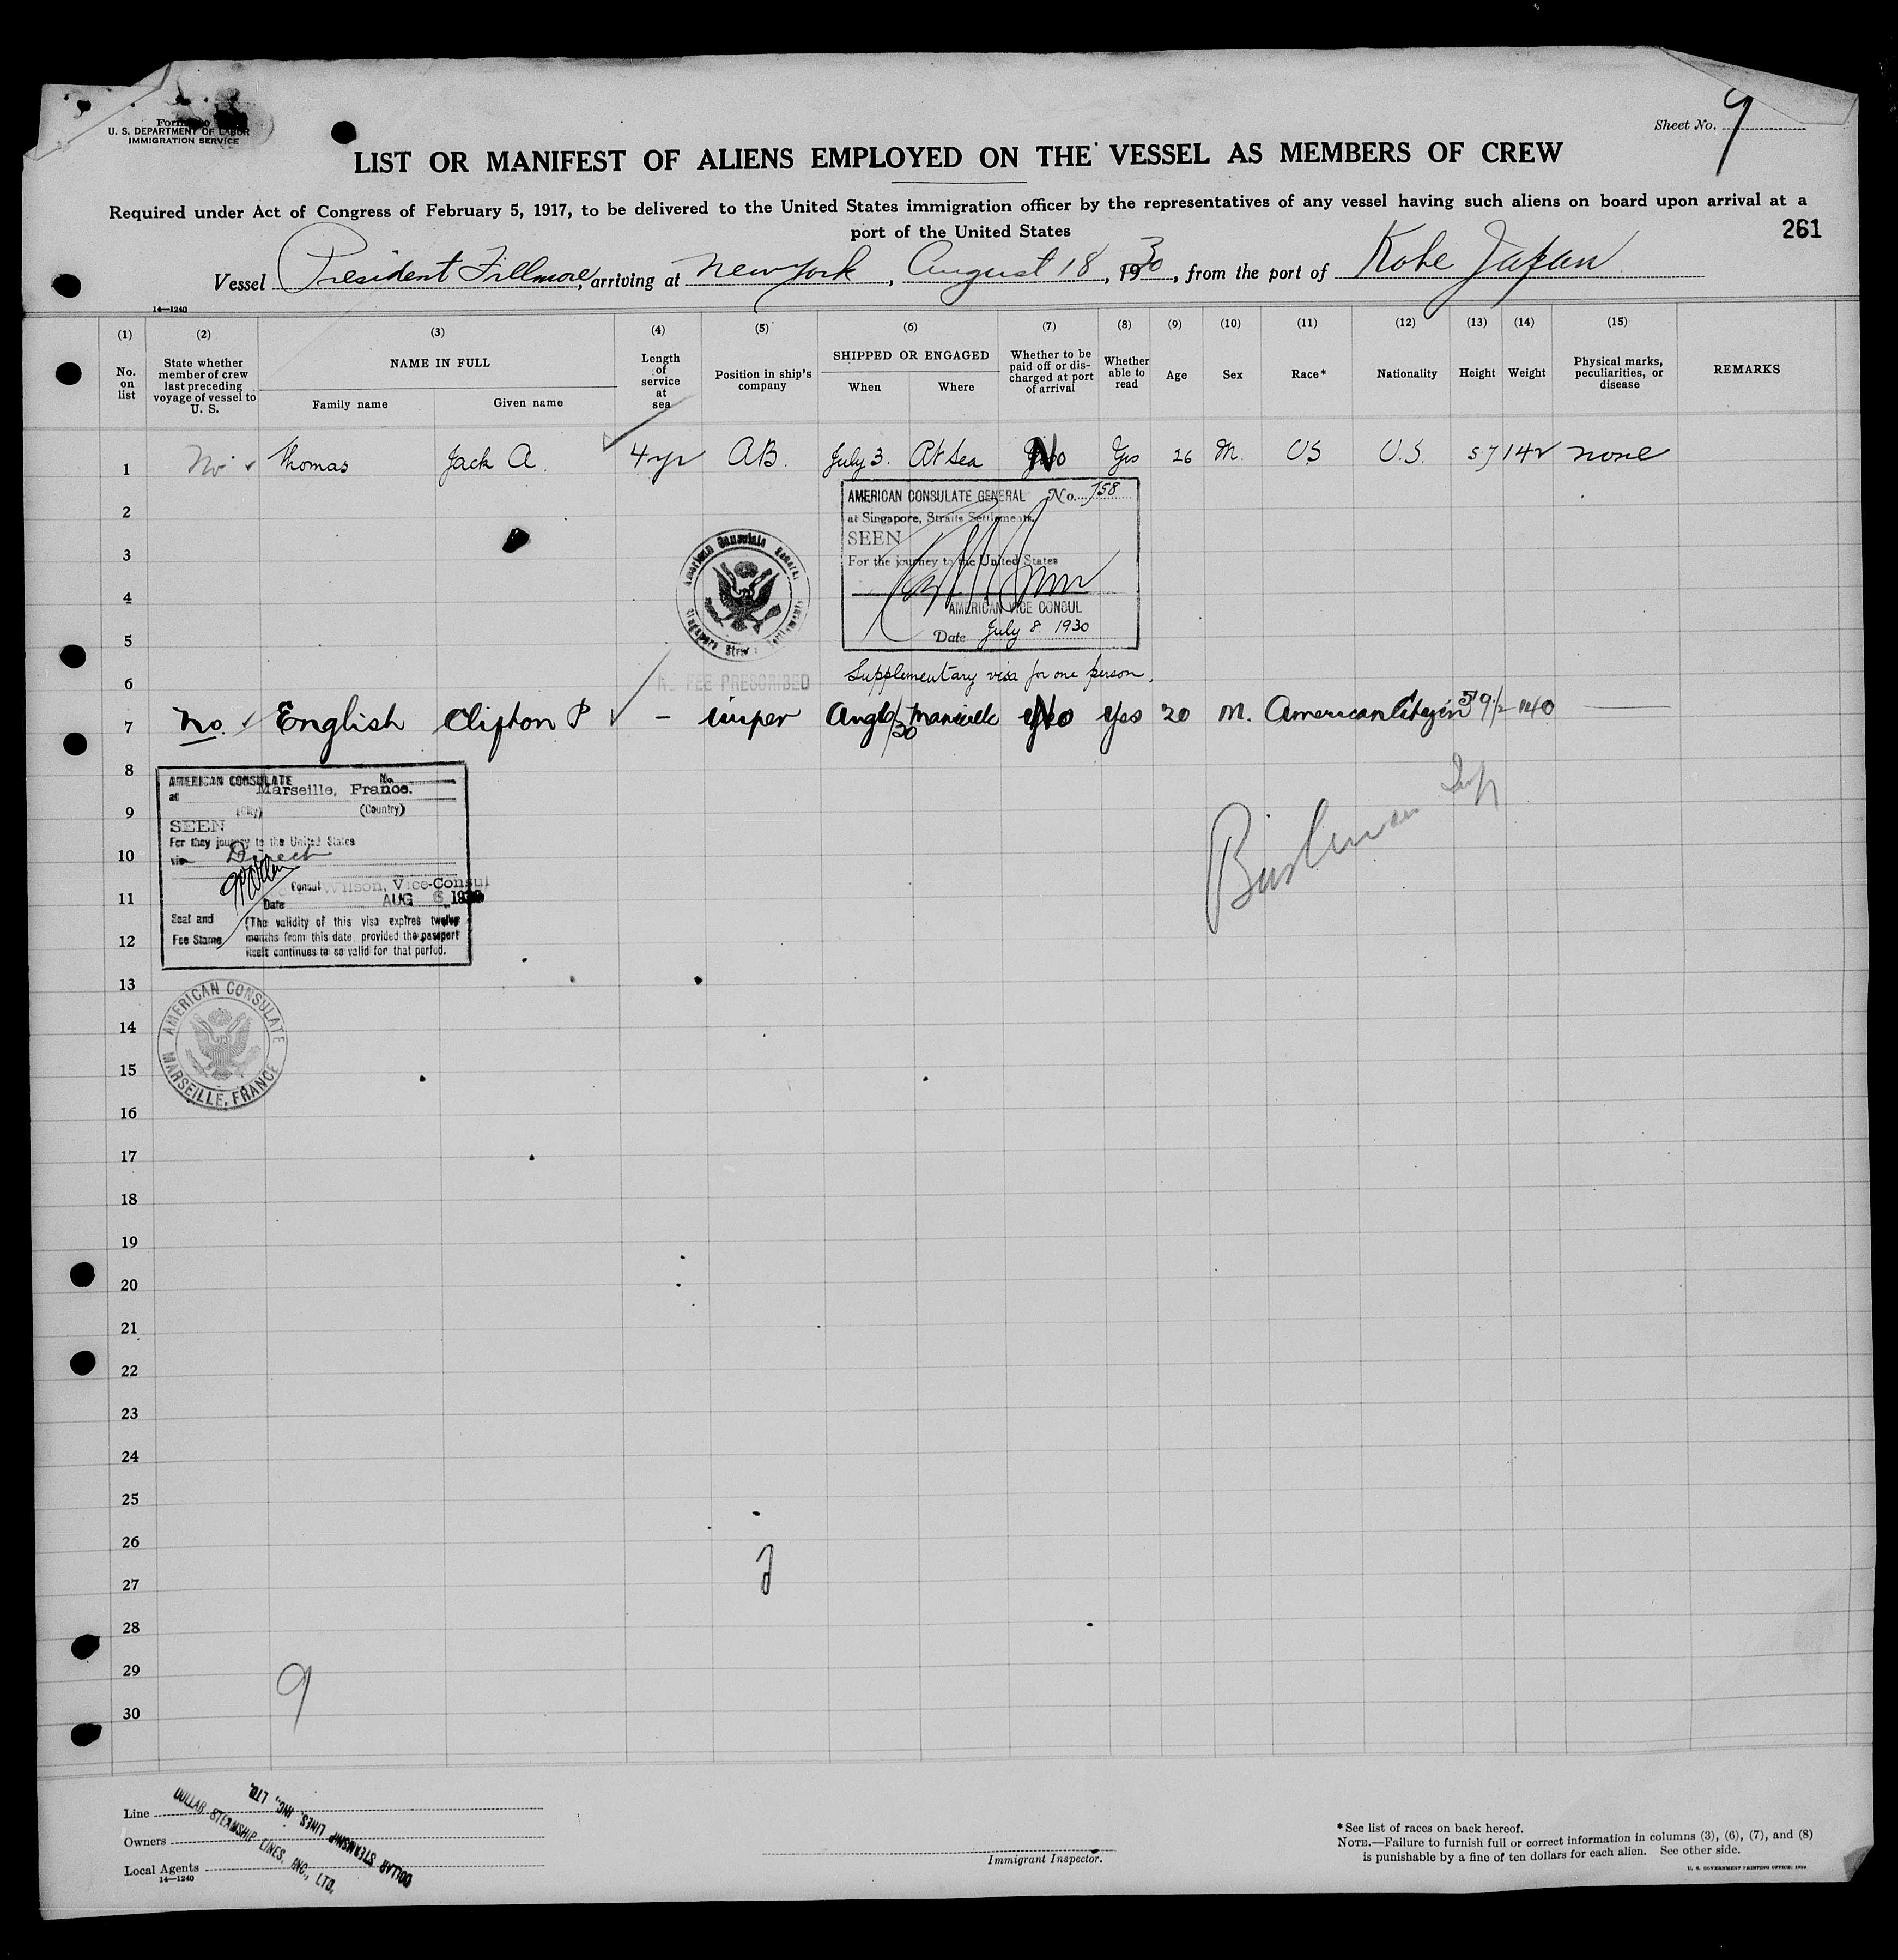 Sheet No. 9
U. S. DEPARTMENT OF LABOR
IMMIGRATION SERVICE
LIST OR MANIFEST OF ALIENS EMPLOYED ON THE VESSEL AS MEMBERS OF CREW
Required under Act of Congress of February 5, 1917, to be delivered to the United States immigration officer by the representatives of any vessel having such aliens on board upon arrival at a
port of the United States
261
Vessel President Fillmore, arriving at New York, August 18, 1930, from the port of Kobe Japan
14—1240
(1) (2) (3) (4) (5) (6) (7) (8) (9) (10) (11) (12) (13) (14) (15)
No. on list
State whether member of crew last preceding voyage of vessel to U. S.
NAME IN FULL
Family name Given name
Length of service at sea
Position in ship's company
SHIPPED OR ENGAGED
When Where
Whether to be paid off or discharged at port of arrival
Whether able to read
Age
Sex
Race*
Nationality
Height
Weight
Physical marks, peculiarities, or disease
REMARKS
1 No Thomas Jack A. 4 yr AB. July 3. At Sea No Yes 26 M. US U.S. 5 7 142 none
2
AMERICAN CONSULATE GENERAL No. 758
at Singapore, Straits Settlements.
SEEN
For the journey to the United States
AMERICAN VICE CONSUL
Date July 8. 1930
American Consulate General
Singapore Straits Settlements
3
4
5
6
NO FEE PRESCRIBED
Supplementary visa for one person.
7 No. English Clifton P - wiper Aug 6/30 Marseille No Yes 20 M. American Citizen 5 9 1/2 140
8
AMERICAN CONSULATE No.
at Marseille, France.
(City) (Country)
SEEN
For they journey to the United States
via Direct
Consul Wilson, Vice-Consul
Date AUG 6 1930
Seal and
Fee Stamp
(The validity of this visa expires twelve
months from this date provided the passport
itself continues to be valid for that period.
9
10
11
12
13
AMERICAN CONSULATE
MARSEILLE, FRANCE
14
15
16
17
18
19
20
21
22
23
24
25
26
27
28
29
9
30
Line
Owners
Local Agents
14—1240
DOLLAR STEAMSHIP LINES, INC., LTD.
DOLLAR STEAMSHIP LINES, INC., LTD.
Immigrant Inspector.
*See list of races on back hereof.
NOTE.—Failure to furnish full or correct information in columns (3), (6), (7), and (8)
is punishable by a fine of ten dollars for each alien. See other side.